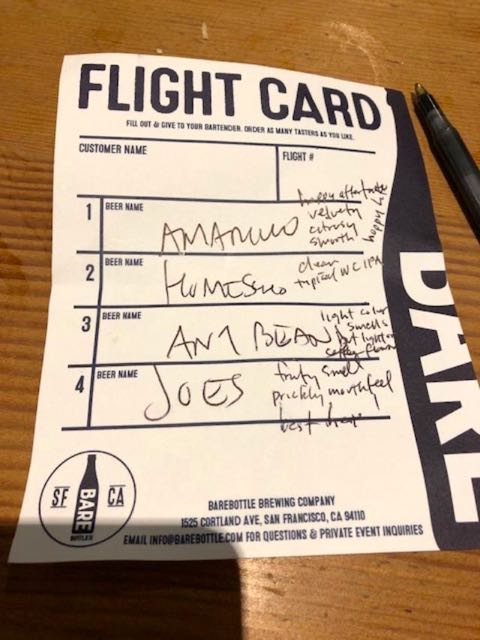 FLIGHT CARD
FILL OUT & GIVE TO YOUR BARTENDER. ORDER AS MANY TASTERS AS YOU LIKE.
CUSTOMER NAME
FLIGHT #
1
BEER NAME
AMARILLO
hoppy aftertaste
velvety
citrusy
smooth
hoppy
2
BEER NAME
clean
typical WC IPA
3
BEER NAME
ANT BEAN
light color
smells
but light on
coffee flavor
4
BEER NAME
JOES
fruity smell
prickly mouthfeel
best
SF
CA
BARE
BOTTLE
BAREBOTTLE BREWING COMPANY
1525 CORTLAND AVE, SAN FRANCISCO, CA 94110
EMAIL INFO@BAREBOTTLE.COM FOR QUESTIONS & PRIVATE EVENT INQUIRIES
BARE